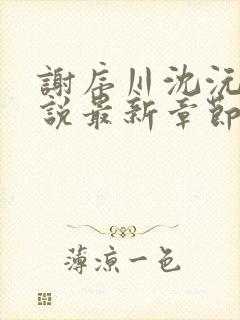 謝辰川沈沅
說最新章節
薄涼一色